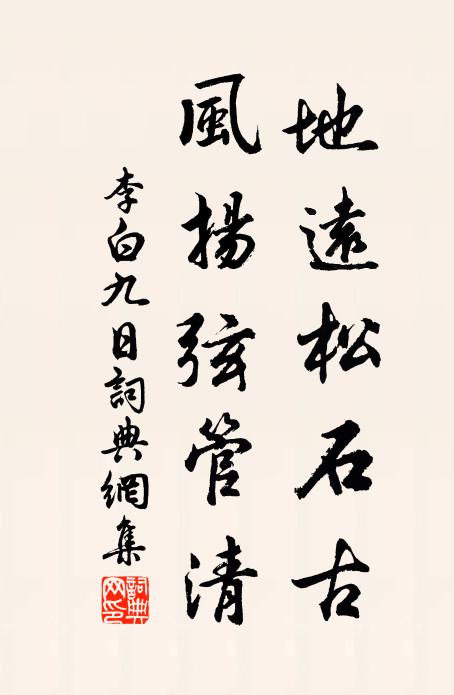 地遠松石古
風揚弦管清
李白九日詞典網集
詞典網印